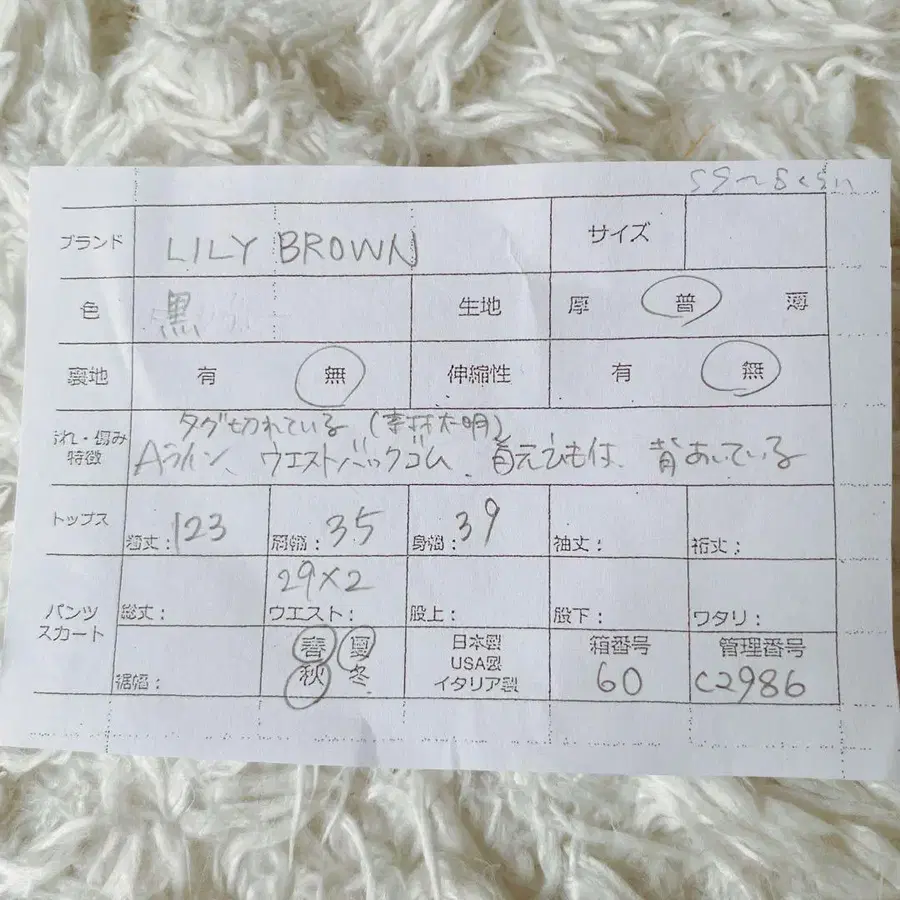 ブランド LILY BROWN サイズ
色 黒 生地 厚 普 薄
裏地 有 無 伸縮性 有 無
汚れ・傷み 特徴 タグ切れている (素材不明)
Aライン、ウエストバックゴム、首元ひも付、背あいている
トップス 着丈: 123 肩幅: 35 身幅: 39 袖丈: 裄丈:
29×2
パンツ スカート 総丈: ウエスト: 股上: 股下: ワタリ:
裾幅: 春 夏 秋 冬 日本製 USA製 イタリア製 箱番号 60 管理番号 C2986